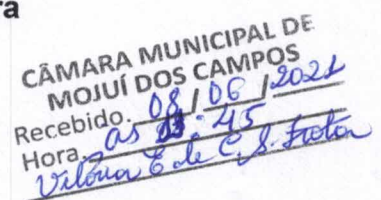 ra
CÂMARA MUNICIPAL DE
MOJUÍ DOS CAMPOS
Recebido. 08 / 06 / 2021
Hora. as :45
Vitória E de C. S. Frota